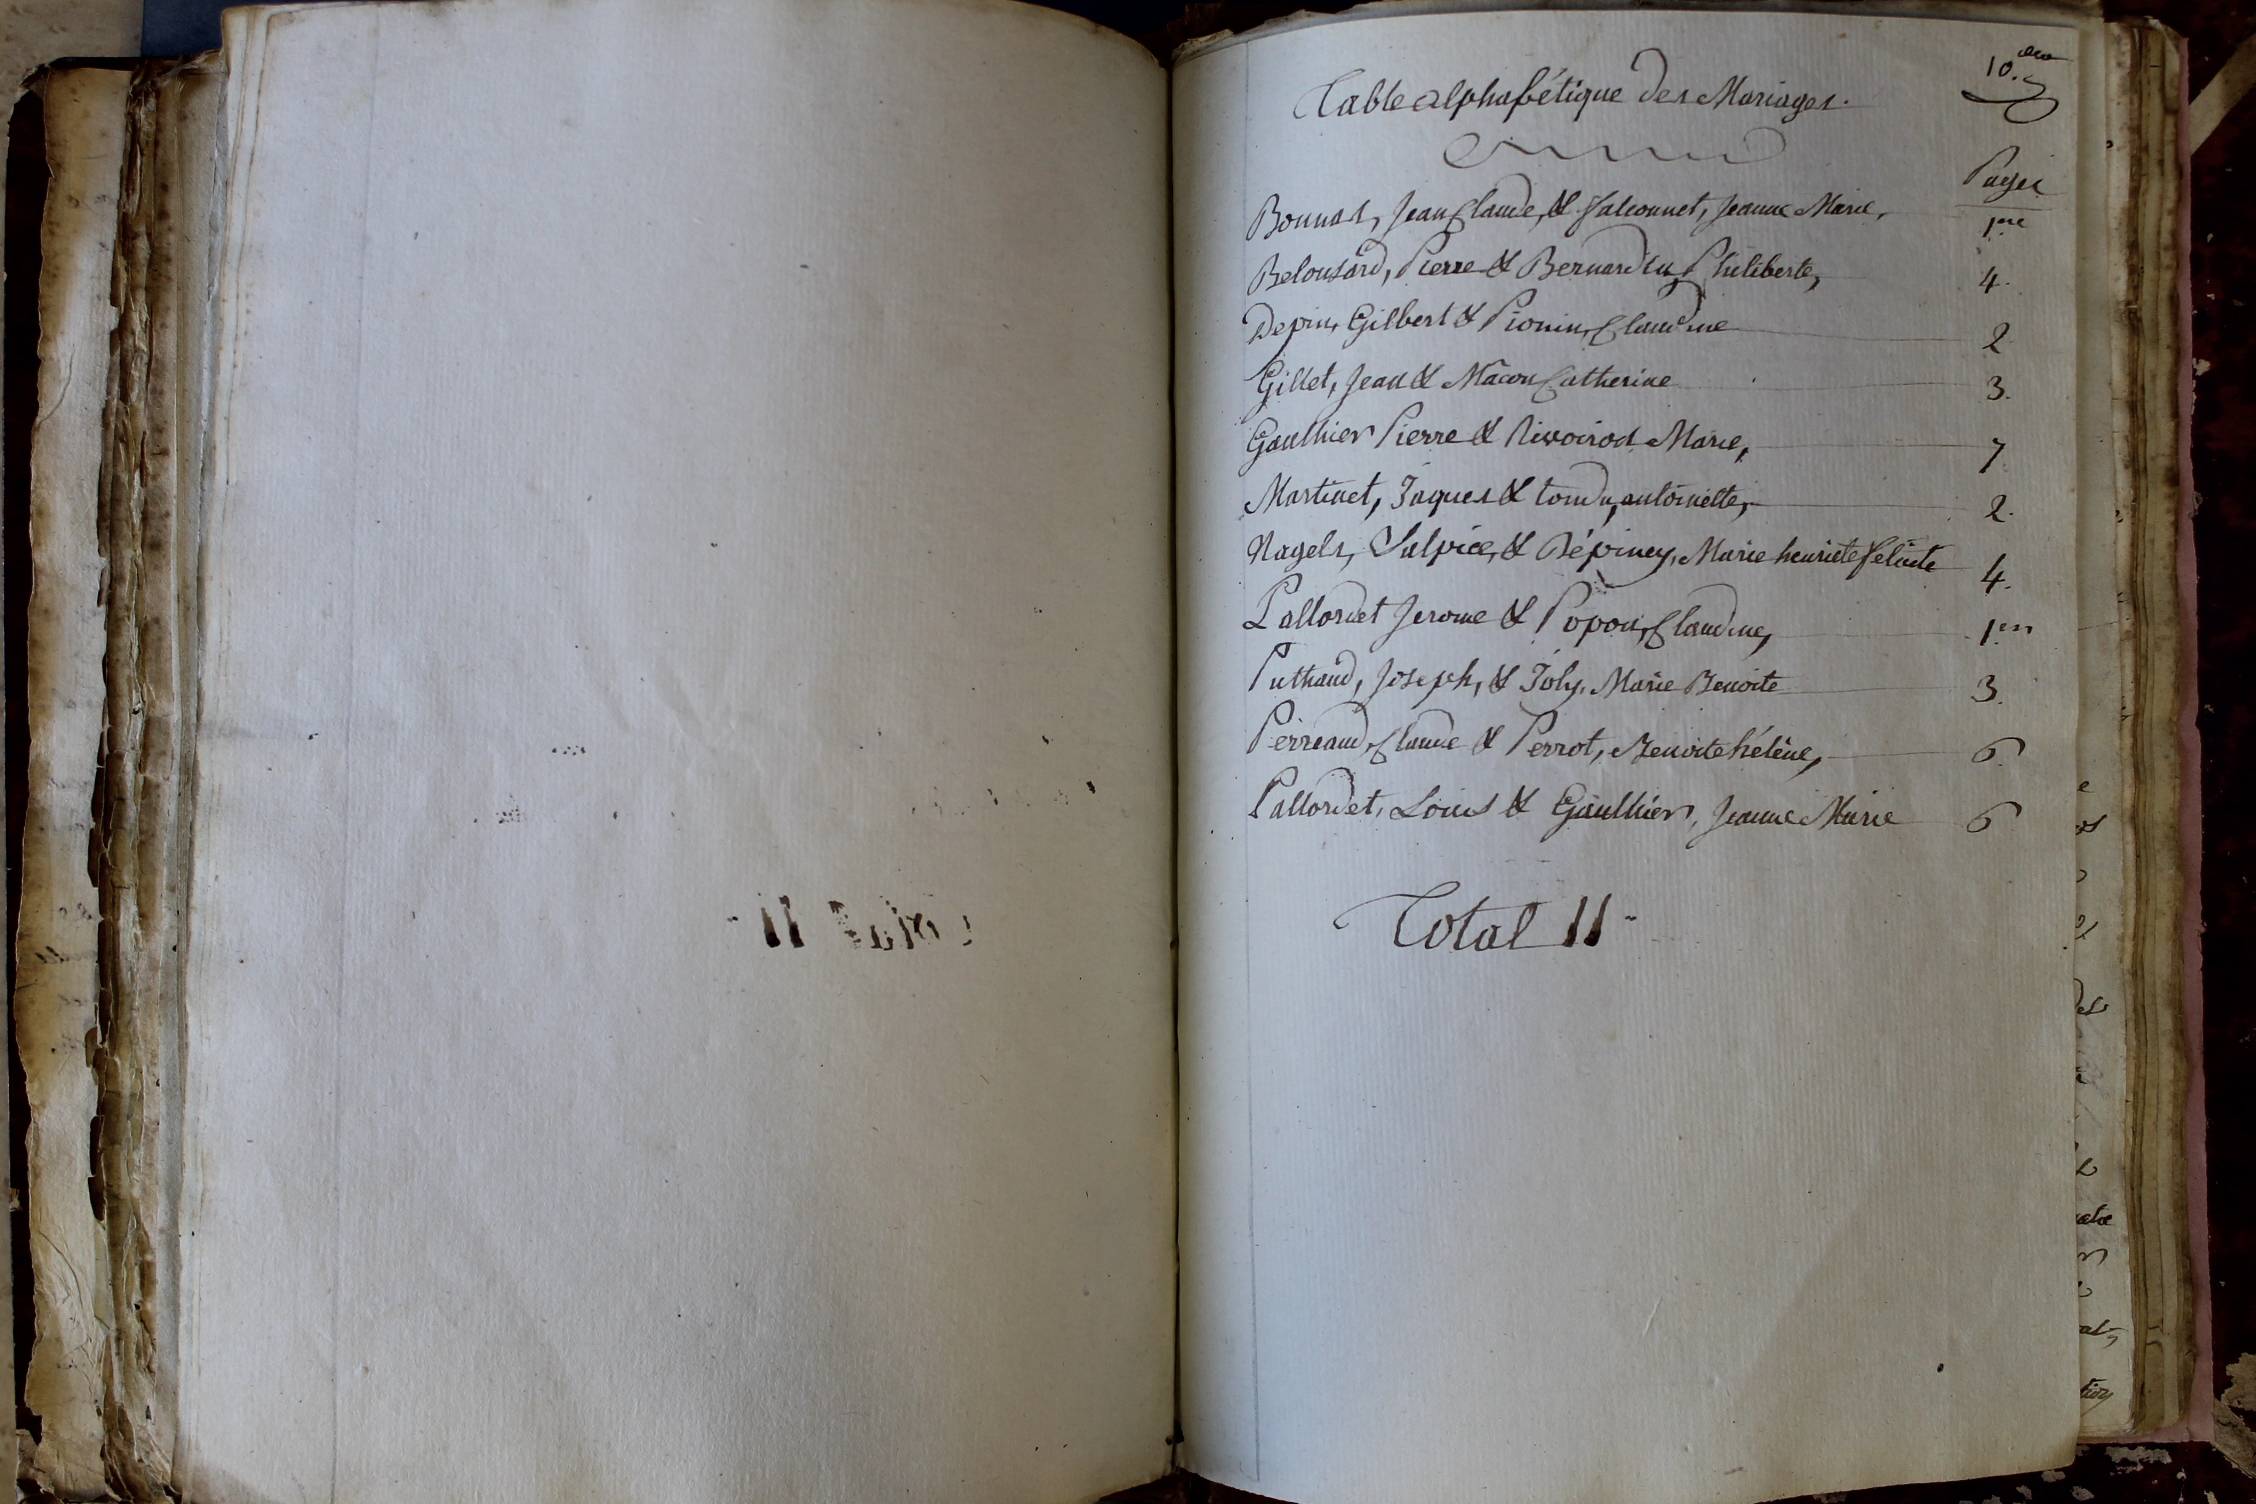 10.eme
Table alphabétique des Mariages.
Pages
Bonnas, Jean Claude, & Falconnet, Jeanne Marie, 1.ere
Belousard, Pierre & Bernardin, Philiberte, 4.
Depin, Gilbert & Pionin, Claudine 2
Gillet, Jean & Mâcon Catherine 3.
Gaulthier Pierre & Rivoirod Marie, 7
Martinet, Jaques & tondu, antoinette, 2.
Nagels, Sulpice, & Dépiney, Marie henriete félicite 4.
Pallordet Jerome & Popon, Claudine, 1.ere
Puthaud, Joseph, & Joly, Marie Benoite 3.
Perreaud, Claude & Perrot, Benoite hélène, 6.
Pallordet, Louis & Gaulthier, Jeanne Marie 6
Total 11